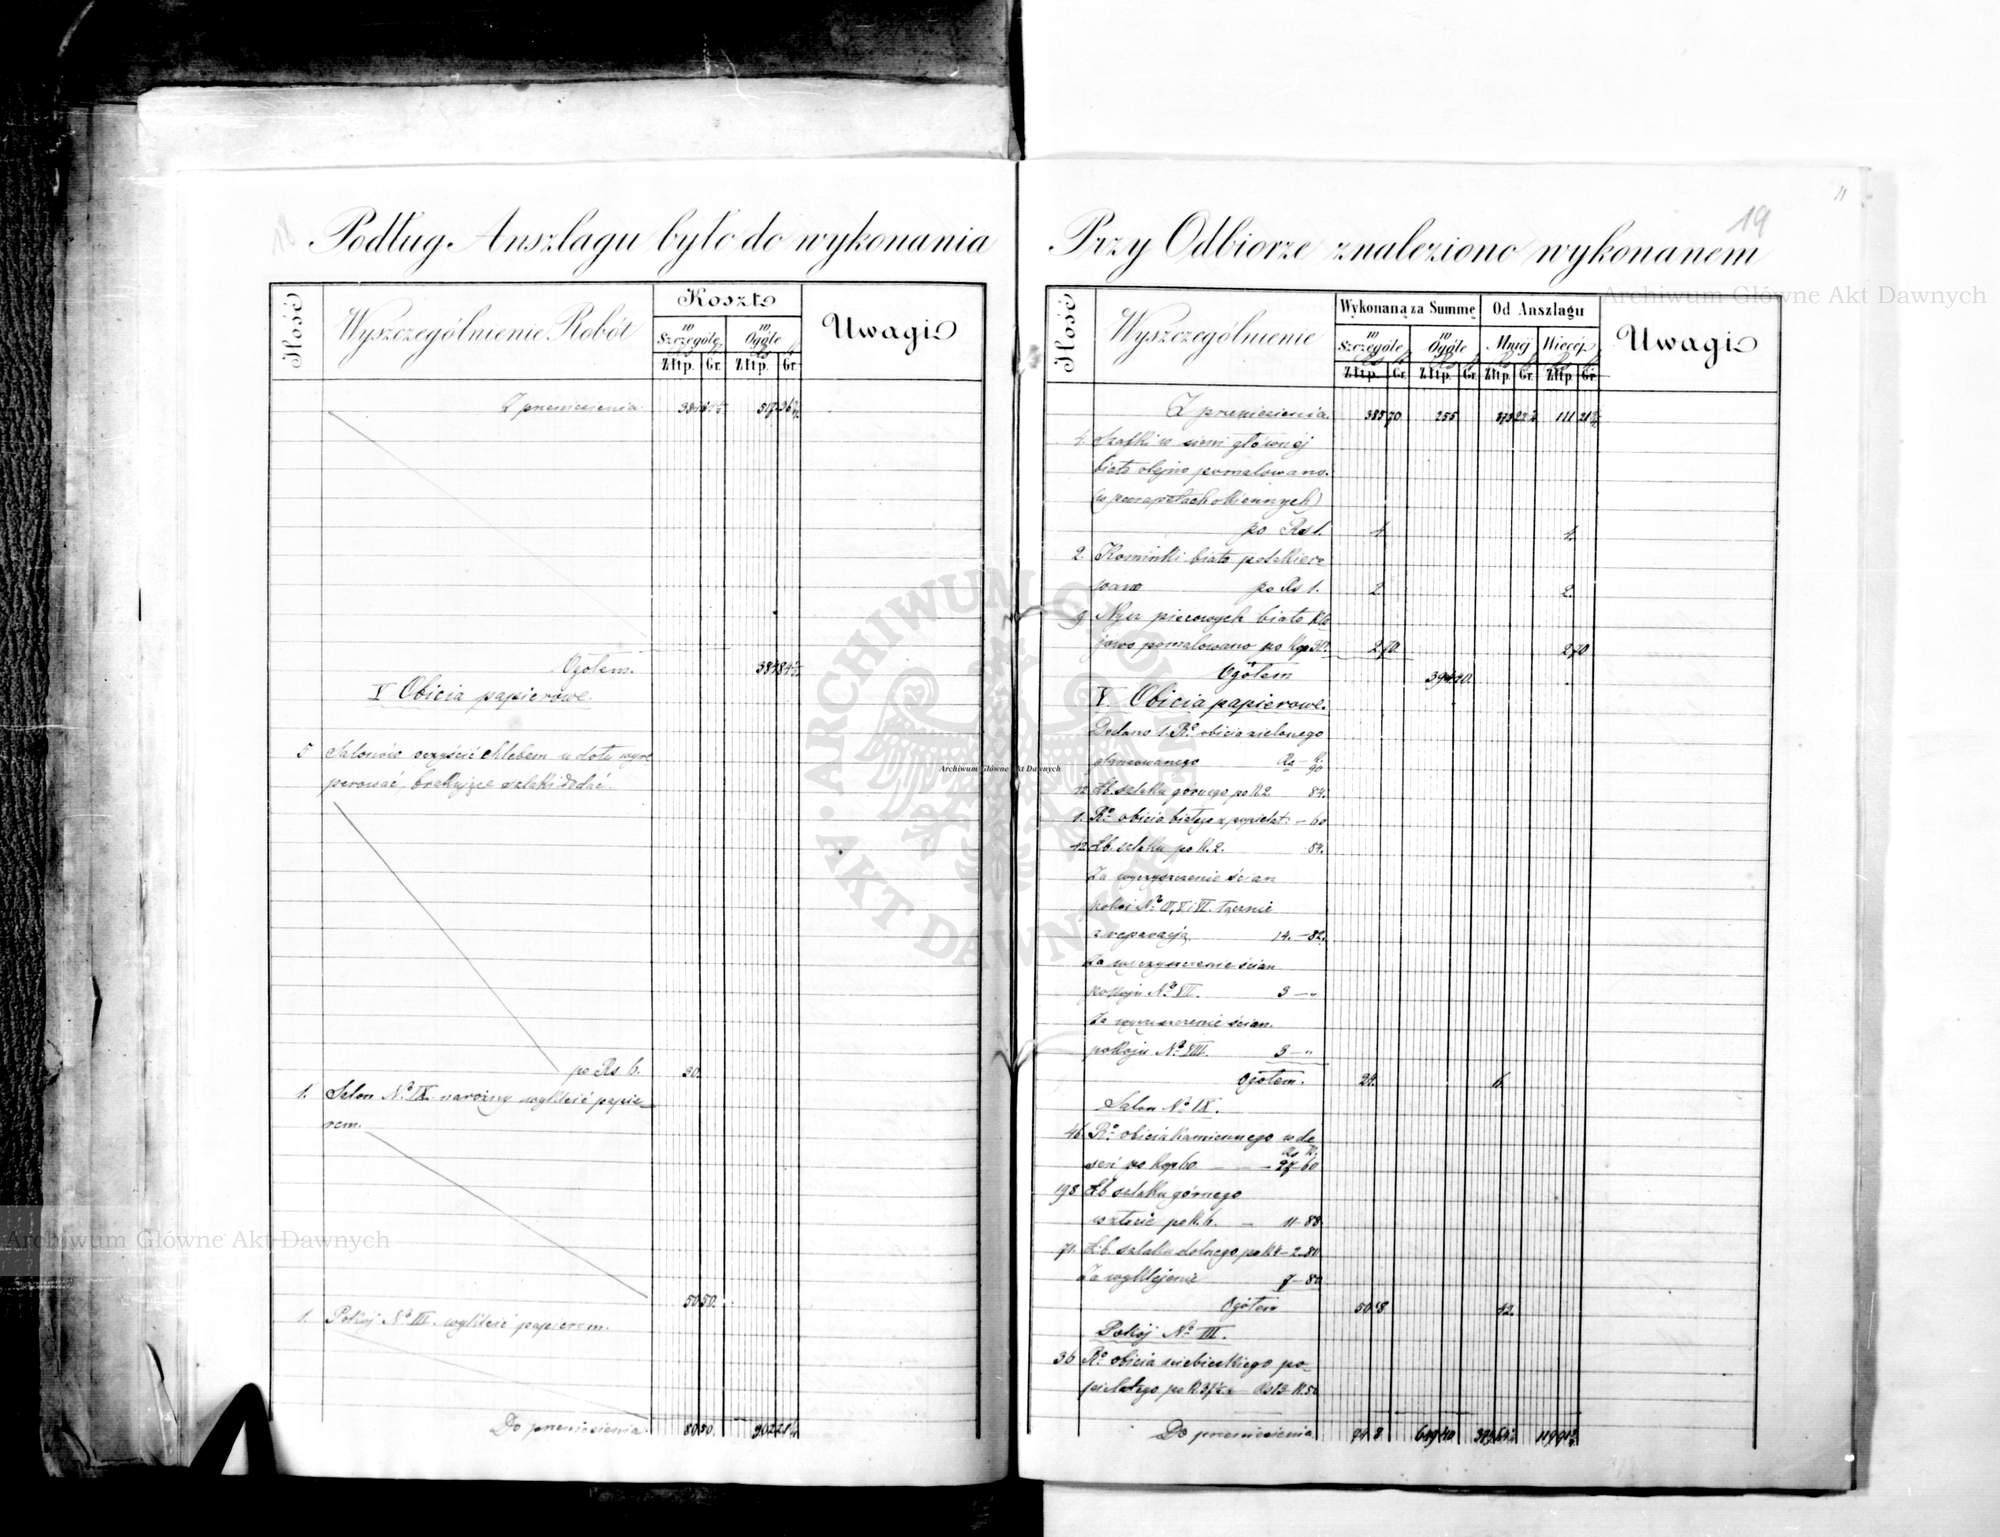 18
Podług Anszlagu było do wykonania
Ilość
Wyszczególnienie Robót
Koszta
w Szczególe
w Ogóle
Złtp. Gr. Złtp. Gr.
Uwagi
Z przeniesienia
Ogółem.
V Obicia papierowe.
5 Salonów oczyścić chlebem u dołu wyre
perować, brakujące szlaki dodać.
po Rs. 6. 30.
1. Salon No IX. narożny wykleić papie_
rem.
50 50.
1. Pokój No III. wykleić papierem.
Do przeniesienia 80 50. 902
11
19
Przy Odbiorze znaleziono wykonanem
Ilość
Wyszczególnienie
Wykonana za Summę
Od Anszlagu
w Szczególe
w Ogóle
Mniéj
Więcéj
Złtp. Gr. Złtp. Gr. Złtp. Gr. Złtp. Gr.
Uwagi
Z przeniesienia 385 70 255
4 Szafki w sieni głównéj
biało olejno pomalowano.
(w parapetach okiennych)
po Rs 1. 4 4.
2. Kominki biało
po Rs 1. 2 2.
9 Nyż piecowych biało kle
jowo pomalowano po kop 30. 2 70 2 70
Ogółem 394 40.
V. Obicia papierowe.
Dodano 1. Ro obicia zielonego
glansowanego Rs – k. 90
42 Łb. szlaku górnego po k 2 84.
1. Ro obicia białego z popielat: – 60
42 Łb. szlaku po k. 2. 84.
Za wyczyszczenie ścian
pokoi No IV, V i VI. łącznie
z reparacją 14. – 82.
Za wyczyszczenie ścian
pokoju No VII. 3 – "
Za wyczyszczenie ścian.
pokoju No VIII. 3 – "
Ogółem. 24. 6.
Salon No IX.
46. Ro obicia kamiennego w de
seń po kop 60. Rs k. 27 60
198 Łb szlaku górnego
po k. 6. – 11 – 88.
71. Łb. szlaku dolnego po k 4 – 2 – 80
Za wyklejenie 7 – 80
Ogółem 50 8 42.
Pokój No III.
36 Ro obicia niebieskiego po_
pielatego po k. 37½ Rs 13 k. 50
Do przeniesienia 74 8 649 40
Archiwum Główne Akt Dawnych
Archiwum Główne Akt Dawnych
Archiwum Główne Akt Dawnych
ARCHIWUM GŁÓWNE AKT DAWNYCH